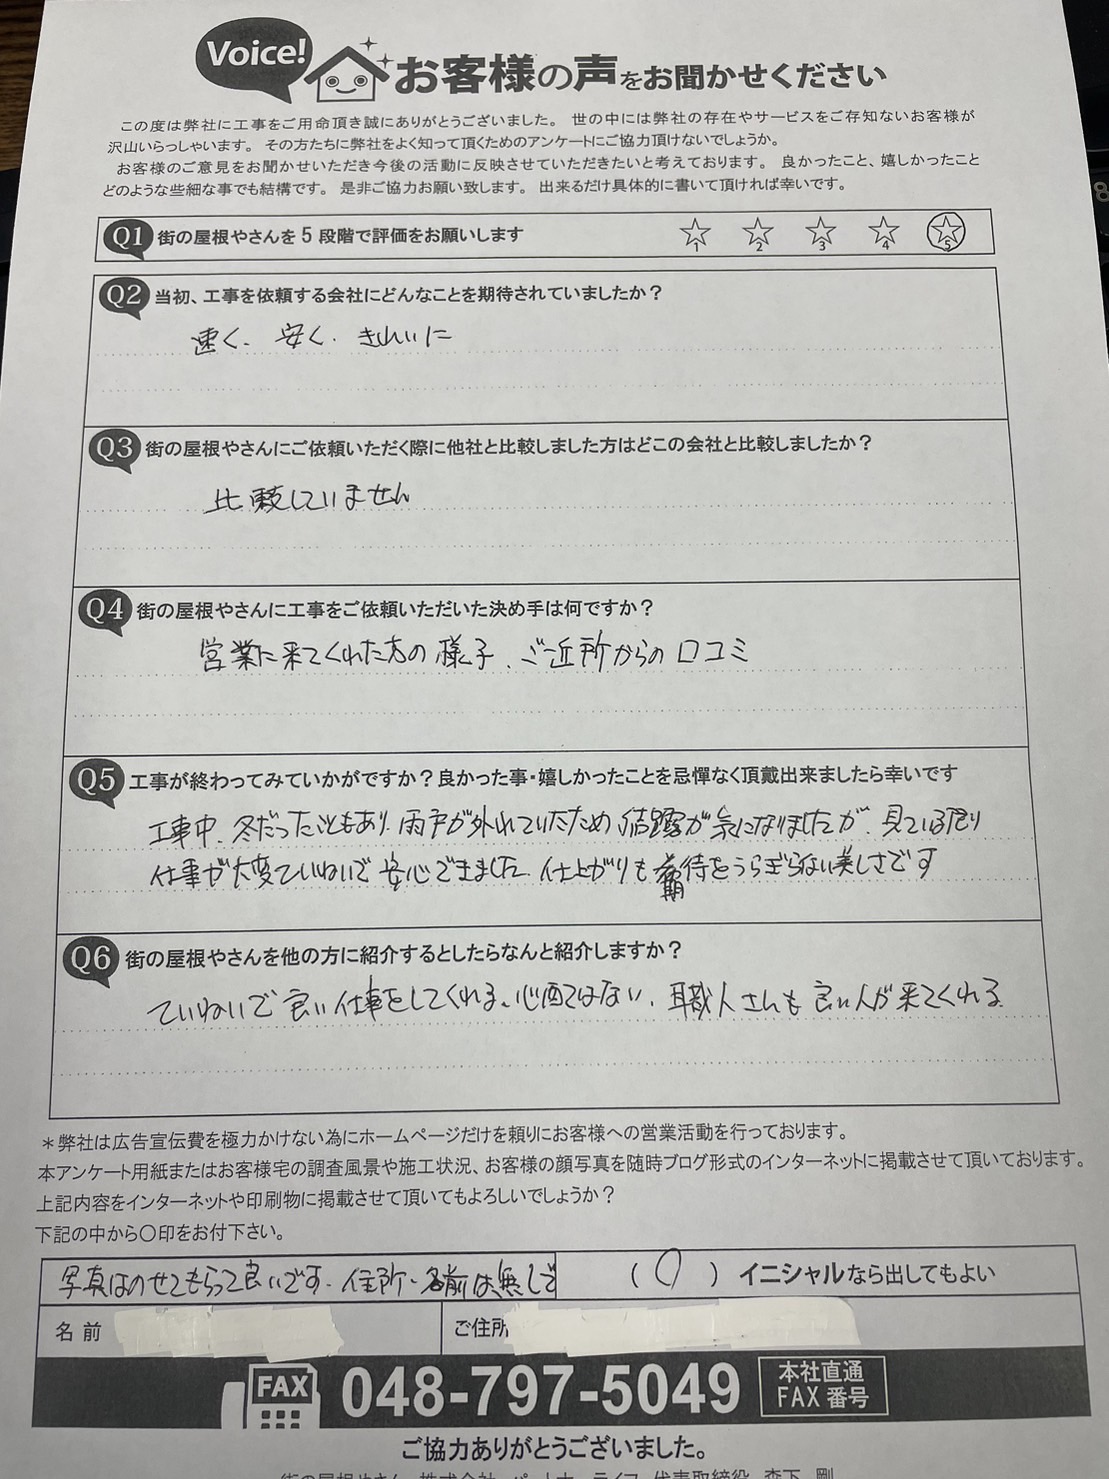 Voice!
お客様の声をお聞かせください
この度は弊社に工事をご用命頂き誠にありがとうございました。 世の中には弊社の存在やサービスをご存知ないお客様が
沢山いらっしゃいます。 その方たちに弊社をよく知って頂くためのアンケートにご協力頂けないでしょうか。
お客様のご意見をお聞かせいただき今後の活動に反映させていただきたいと考えております。 良かったこと、嬉しかったこと
どのような些細な事でも結構です。 是非ご協力お願い致します。 出来るだけ具体的に書いて頂ければ幸いです。
Q1 街の屋根やさんを5段階で評価をお願いします 1 2 3 4 5
Q2 当初、工事を依頼する会社にどんなことを期待されていましたか？
速く、安く、きれいに
Q3 街の屋根やさんにご依頼いただく際に他社と比較しました方はどこの会社と比較しましたか？
比較していません
Q4 街の屋根やさんに工事をご依頼いただいた決め手は何ですか？
営業に来てくれた方の様子、ご近所からの口コミ
Q5 工事が終わってみていかがですか？良かった事・嬉しかったことを忌憚なく頂戴出来ましたら幸いです
工事中、冬だったこともあり、雨戸が外れていたため結露が気になりましたが、見ている限り
仕事が大変ていねいで安心できました。仕上がりも期待をうらぎらない美しさです
Q6 街の屋根やさんを他の方に紹介するとしたらなんと紹介しますか？
ていねいで良い仕事をしてくれる、心配ではない、職人さんも良い人が来てくれる
＊弊社は広告宣伝費を極力かけない為にホームページだけを頼りにお客様への営業活動を行っております。
本アンケート用紙またはお客様宅の調査風景や施工状況、お客様の顔写真を随時ブログ形式のインターネットに掲載させて頂いております。
上記内容をインターネットや印刷物に掲載させて頂いてもよろしいでしょうか？
下記の中から〇印をお付下さい。
写真はのせてもらって良いです、住所・名前は無しで （〇） イニシャルなら出してもよい
名前 ご住所
FAX 048-797-5049 本社直通
FAX番号
ご協力ありがとうございました。